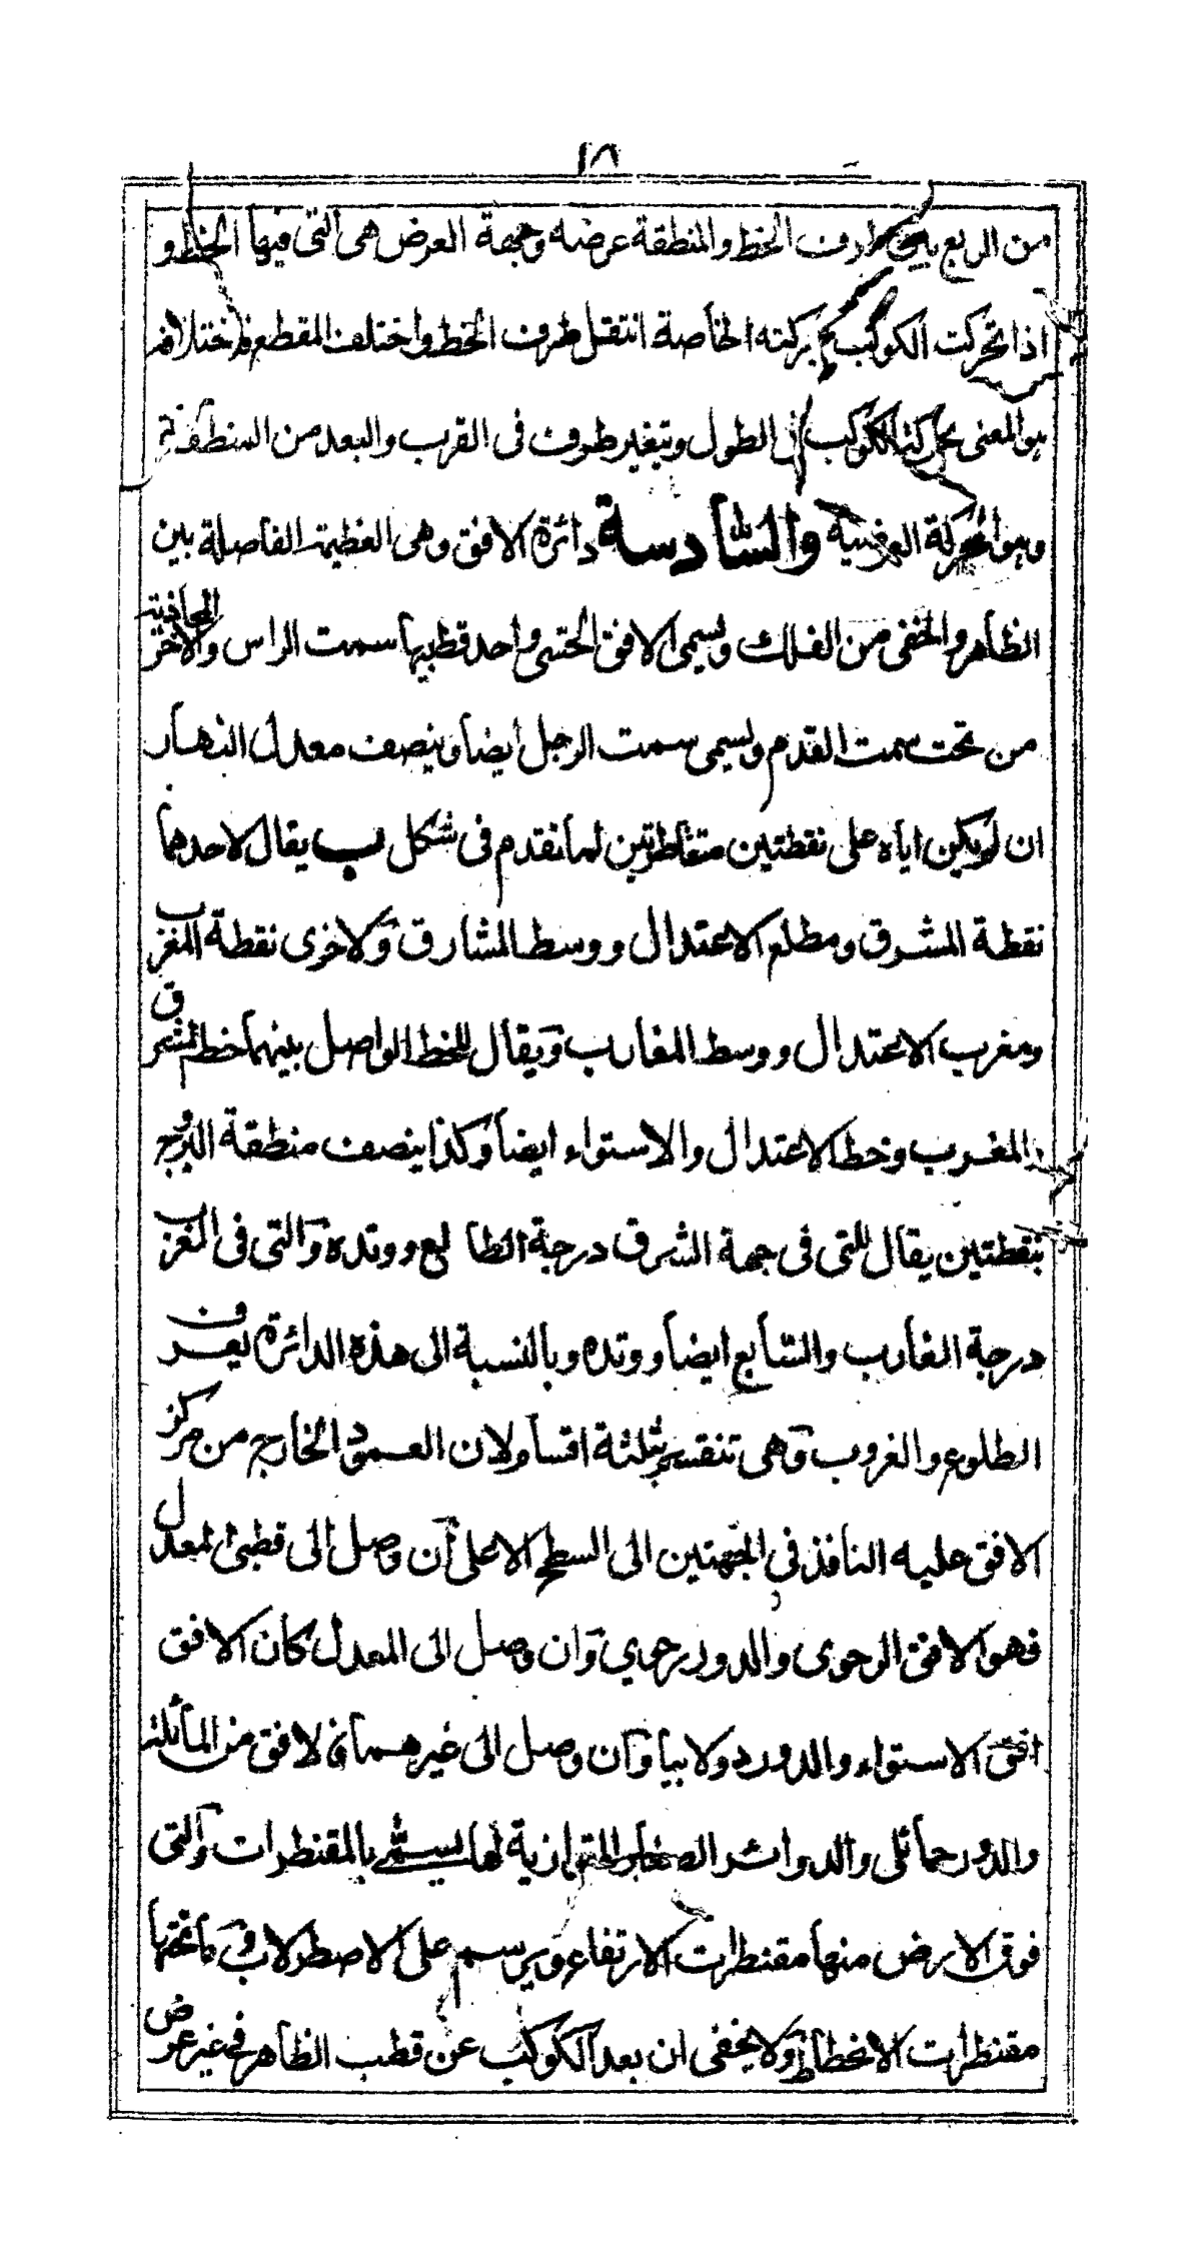 ١٨
من الربع بين طرف الخط والمنطقة عرضه وجهة العرض هى التى فيها الخط و
اذا تحركت الكوكب بحركته الخاصة انتقل طرف الخط واختلف المقطع فاختلافه
هو المعنى بحركة الكوكب فى الطول ويتغير طرف فى القرب والبعد من المنطقة
وهو الحركة العرضية والسادسة دائرة الافق وهى العظيمة الفاصلة بين
الظاهر والخفى من الفلك ويسمى الافق الحسى واحد قطبيها سمت الراس والاخر المحاذية
من تحت سمت القدم ويسمى سمت الرجل ايضا وينصف معدل النهار
ان لم يكن اياه على نقطتين متقاطرتين لما تقدم فى شكل ب يقال لاحدهما
نقطة المشرق ومطلع الاعتدال ووسط المشارق والاخرى نقطة المغرب
ومغرب الاعتدال ووسط المغارب ويقال للخط الواصل بينهما خط المشرق
والمغرب وخط الاعتدال والاستواء ايضا وكذا ينصف منطقة البروج
بنقطتين يقال للتى فى جهة الشرق درجة الطالع ووتده والتى فى الغرب
درجة الغارب والسابع ايضا ووتده وبالنسبة الى هذه الدائرة يعرف
الطلوع والغروب وهى تنقسم بثلثة اقسام لان العمود الخارج من مركز
الافق عليه النافذ فى الجهتين الى السطح الاعلى ان وصل الى قطبى المعدل
فهو الافق الرحوى والدور رحوي وان وصل الى المعدل كان الافق
افق الاستواء والدور دولابيا وان وصل الى غيرهما فالافق من المائلة
والدور حمائلى والدوائر الصغار المتوازية لها يسمى بالمقنطرات والتى
فوق الارض منها مقنطرات الارتفاع ويرسم على الاصطرلاب وما تحتها
مقنطرات الانحطاط ولا يخفى ان بعد الكوكب عن قطب الظاهر فى غير عرض